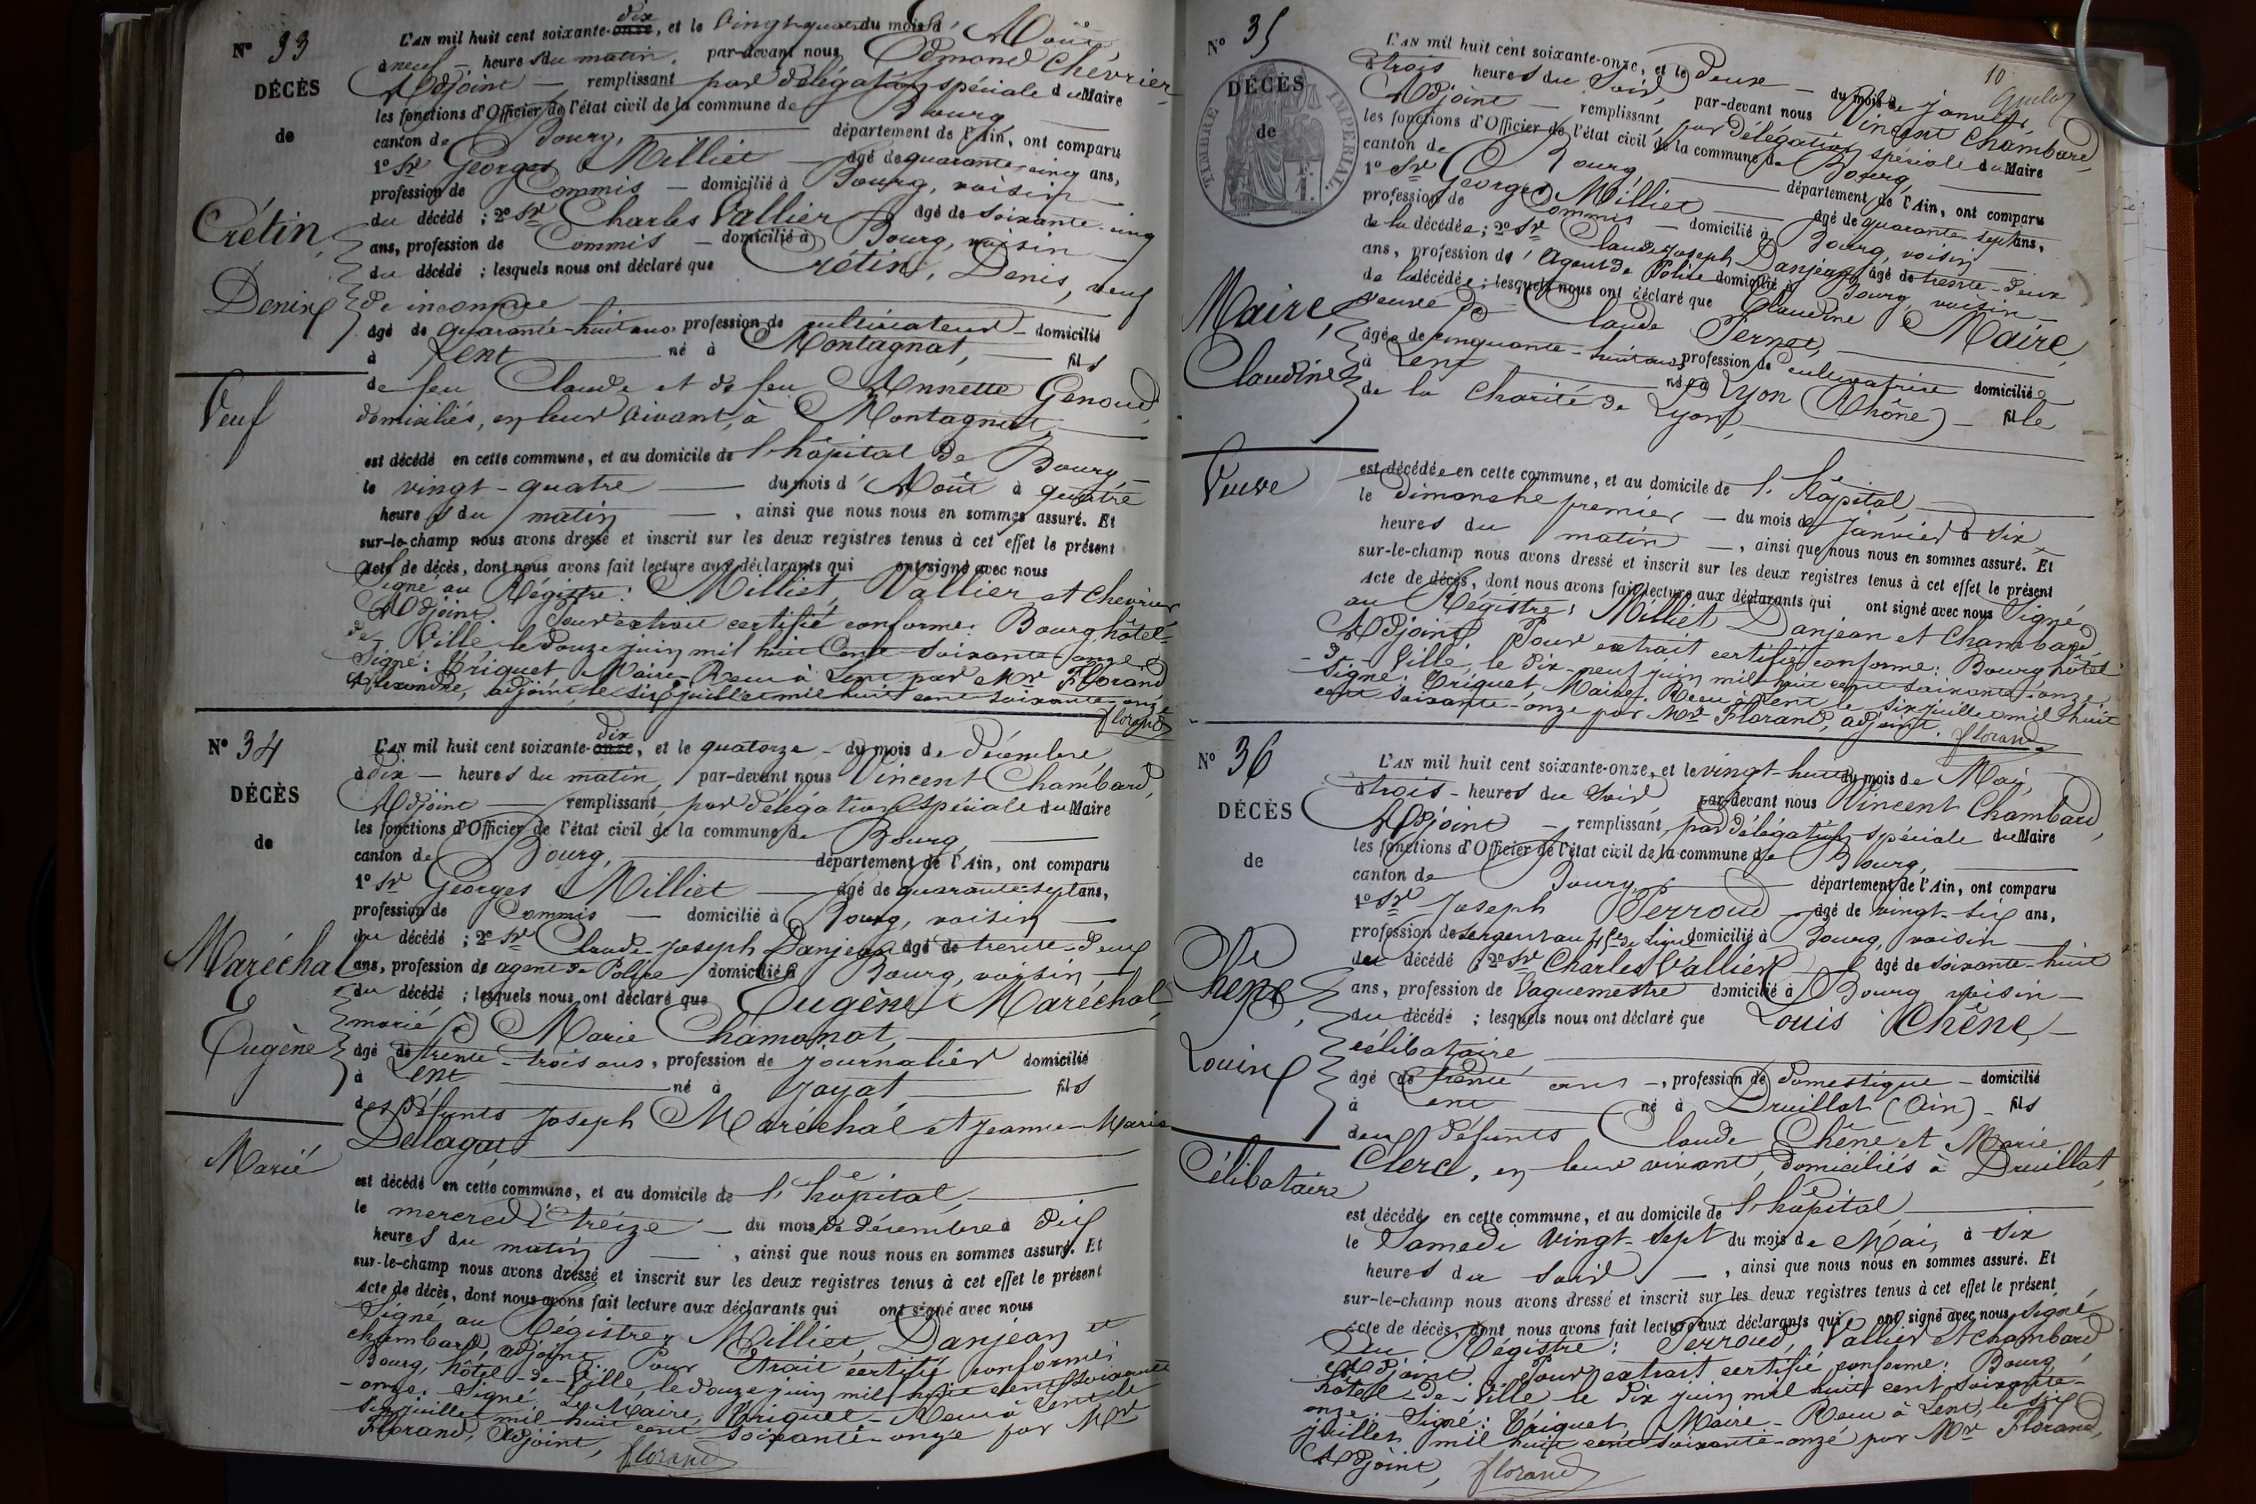 N° 33
DÉCÈS
de
Crétin,
Denis
Veuf
dix
L'AN mil huit cent soixante-onze, et le vingt-quatre du mois d'Août,
à neuf heures du matin, par-devant nous Edmond Chevrier,
Adjoint remplissant par délégation spéciale du Maire
les fonctions d'Officier de l'état civil de la commune de Bourg
canton de Bourg, département de l'Ain, ont comparu
1° Sr Georges Milliet âgé de quarante-cinq ans,
profession de Commis domicilié à Bourg, voisin
du décédé ; 2° Sr Charles Vallier âgé de soixante-cinq
ans, profession de Commis domicilié à Bourg, voisin
du décédé ; lesquels nous ont déclaré que Crétin, Denis, veuf
de inconnue
âgé de quarante-huit ans, profession de cultivateur domicilié
à Lent né à Montagnat, fils
de feu Claude et de feu Annette Genoud
domiciliés, en leur vivant, à Montagnat,
est décédé en cette commune, et au domicile de l'hôpital de Bourg
le vingt-quatre du mois d'Août à quatre
heures du matin, ainsi que nous nous en sommes assuré. Et
sur-le-champ nous avons dressé et inscrit sur les deux registres tenus à cet effet le présent
acte de décès, dont nous avons fait lecture aux déclarants qui ont signé avec nous
Signé au Régistre : Milliet, Vallier et Chevrier
Adjoint. Pour extrait certifié conforme : Bourg hôtel-
de Ville, le douze juin mil huit Cent soixante-onze
Signé : Triquet, Maire. Reçu à Lent par Mr Florand
Alexandre, adjoint, le six juillet mil huit cent soixante-onze
florand
N° 34
DÉCÈS
de
Maréchal
Eugène
Marié
dix
L'AN mil huit cent soixante-onze, et le quatorze du mois de décembre,
à dix heures du matin, par-devant nous Vincent Chambard,
Adjoint remplissant par délégation spéciale du Maire
les fonctions d'Officier de l'état civil de la commune de Bourg,
canton de Bourg, département de l'Ain, ont comparu
1° Sr Georges Milliet âgé de quarante-sept ans,
profession de Commis domicilié à Bourg, voisin
du décédé ; 2° Sr Claude-Joseph Danjean âgé de trente-deux
ans, profession de agent de Police domicilié à Bourg, voisin
du décédé ; lesquels nous ont déclaré que Eugène Maréchal,
marié à Marie Chamonat,
âgé de trente-trois ans, profession de journalier domicilié
à Lent né à Jayat, fils
des défunts Joseph Maréchal et Jeanne-Marie
Delagat,
est décédé en cette commune, et au domicile de l'hôpital,
le mercredi treize du mois de décembre à dix
heures du matin, ainsi que nous nous en sommes assuré. Et
sur-le-champ nous avons dressé et inscrit sur les deux registres tenus à cet effet le présent
acte de décès, dont nous avons fait lecture aux déclarants qui ont signé avec nous
Signé au Régistre, Milliet, Danjean et
Chambard, adjoint. Pour Extrait certifié conforme :
Bourg, hôtel-de-Ville, le douze juin mil huit cent soixante
-onze. Signé, Le Maire, Triquet - Reçu à Lent le
six juillet mil huit cent soixante-onze par Mr
Florand, Adjoint, florand
10
N° 35
DÉCÈS
de
TIMBRE IMPÉRIAL.
1 F.
Maire,
Claudine
Veuve
L'AN mil huit cent soixante-onze, et le deux du mois de janvier
à trois heures du soir, par-devant nous Vincent Chambard,
Adjoint remplissant, par délégation spéciale du Maire
les fonctions d'Officier de l'état civil de la commune de Bourg,
canton de Bourg, département de l'Ain, ont comparu
1° Sr Georges Milliet âgé de quarante-sept ans,
profession de Commis domicilié à Bourg, voisin
de la décédée ; 2° Sr Claude Joseph Danjean âgé de trente-deux
ans, profession de Agent de Police domicilié à Bourg voisin
de la décédée ; lesquels nous ont déclaré que Claudine Maire,
veuve de Claude Pernet,
âgée de cinquante-huit ans, profession de cultivatrice domiciliée
à Lent née à Lyon (Rhône) fille
de la Charité de Lyon,
est décédée en cette commune, et au domicile de l'hôpital,
le dimanche premier du mois de Janvier à six
heures du matin, ainsi que nous nous en sommes assuré. Et
sur-le-champ nous avons dressé et inscrit sur les deux registres tenus à cet effet le présent
acte de décès, dont nous avons fait lecture aux déclarants qui ont signé avec nous Signé
au Régistre : Milliet Danjean et Chambard,
Adjoint Pour extrait certifié conforme : Bourg hôtel
-de-Ville, le dix-neuf juin mil huit cent soixante-onze
Signé : Triquet, Maire. Reçu à Lent, le six juillet mil huit
cent soixante-onze par Mr Florand, adjoint. florand
N° 36
DÉCÈS
de
Chêne,
Louis
Célibataire
L'AN mil huit cent soixante-onze, et le vingt-huit du mois de Mai,
à trois heures du soir, par-devant nous Vincent Chambard,
Adjoint remplissant, par délégation spéciale du Maire
les fonctions d'Officier de l'état civil de la commune de Bourg,
canton de Bourg, département de l'Ain, ont comparu
1° Sr Joseph Perroud âgé de vingt-six ans,
profession de sergent au de ligne domicilié à Bourg, voisin
du décédé ; 2° Sr Charles Vallier âgé de soixante-huit
ans, profession de Vaguemestre domicilié à Bourg voisin
du décédé ; lesquels nous ont déclaré que Louis Chêne,
célibataire,
âgé de trente ans, profession de Domestique domicilié
à Lent né à Druillat (Ain) fils
des défunts Claude Chêne et Marie
Clerc, en leur vivant, domiciliés à Druillat,
est décédé en cette commune, et au domicile de l'hôpital,
le Samedi vingt-sept du mois de Mai, à six
heures du soir, ainsi que nous nous en sommes assuré. Et
sur-le-champ nous avons dressé et inscrit sur les deux registres tenus à cet effet le présent
acte de décès, dont nous avons fait lecture aux déclarants qui ont signé avec nous, signé
Au Régistre : Perroud, Vallier et Chambard
Adjoint Pour extrait certifié conforme : Bourg
hôtel-de-Ville le dix juin mil huit cent soixante-
onze. Signé : Triquet, Maire - Reçu à Lent, le six
juillet mil huit cent soixante-onze par Mr Florand,
Adjoint, florand